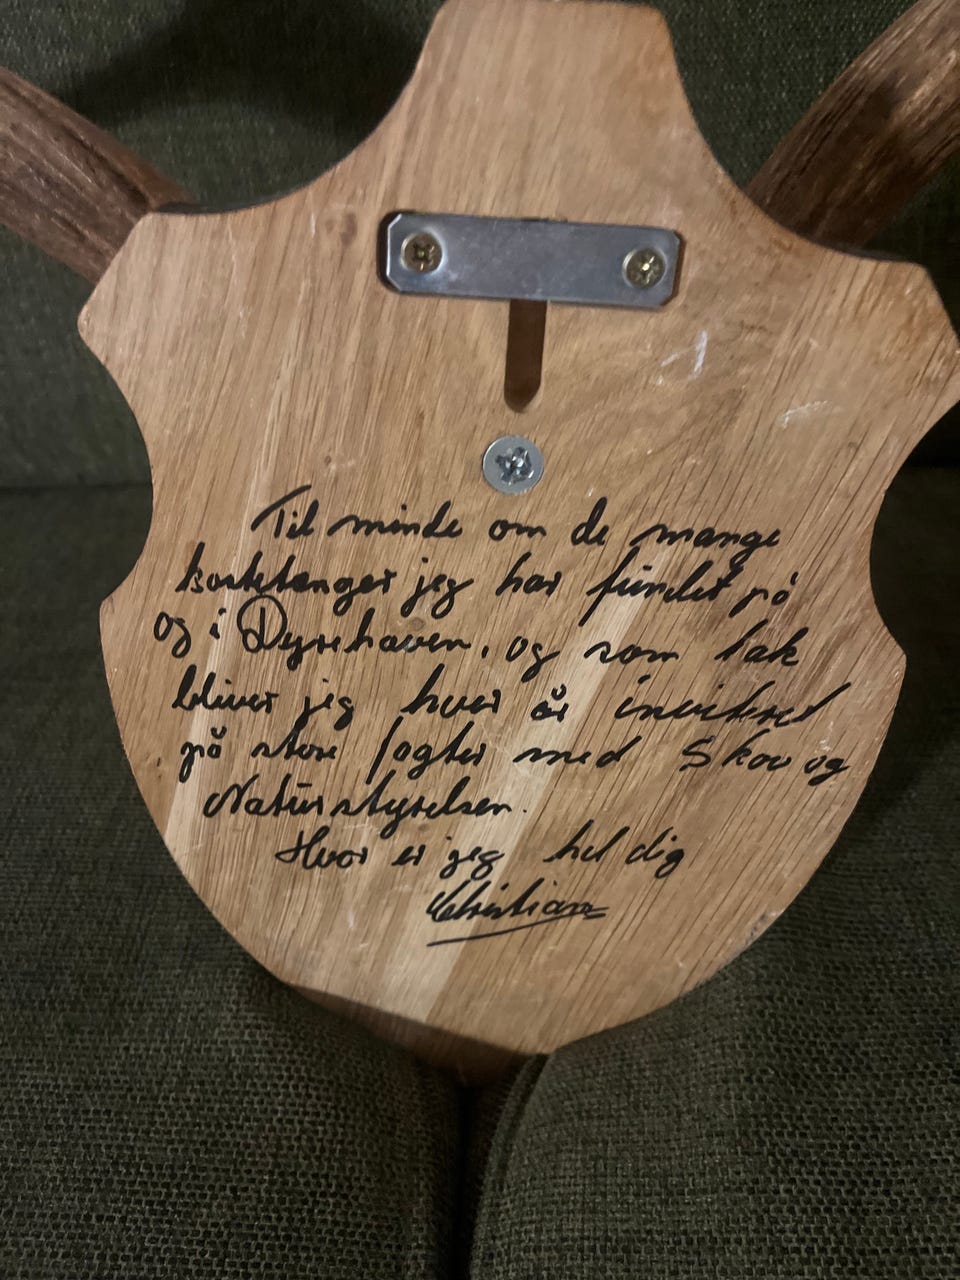 Til minde om de mange
kastetænger jeg har fundet på
og i Dyrehaven, og som tak
bliver jeg hver år inviteret
på store jagter med Skov og
Naturstyrelsen.
Hvor er jeg hel dig
Christian